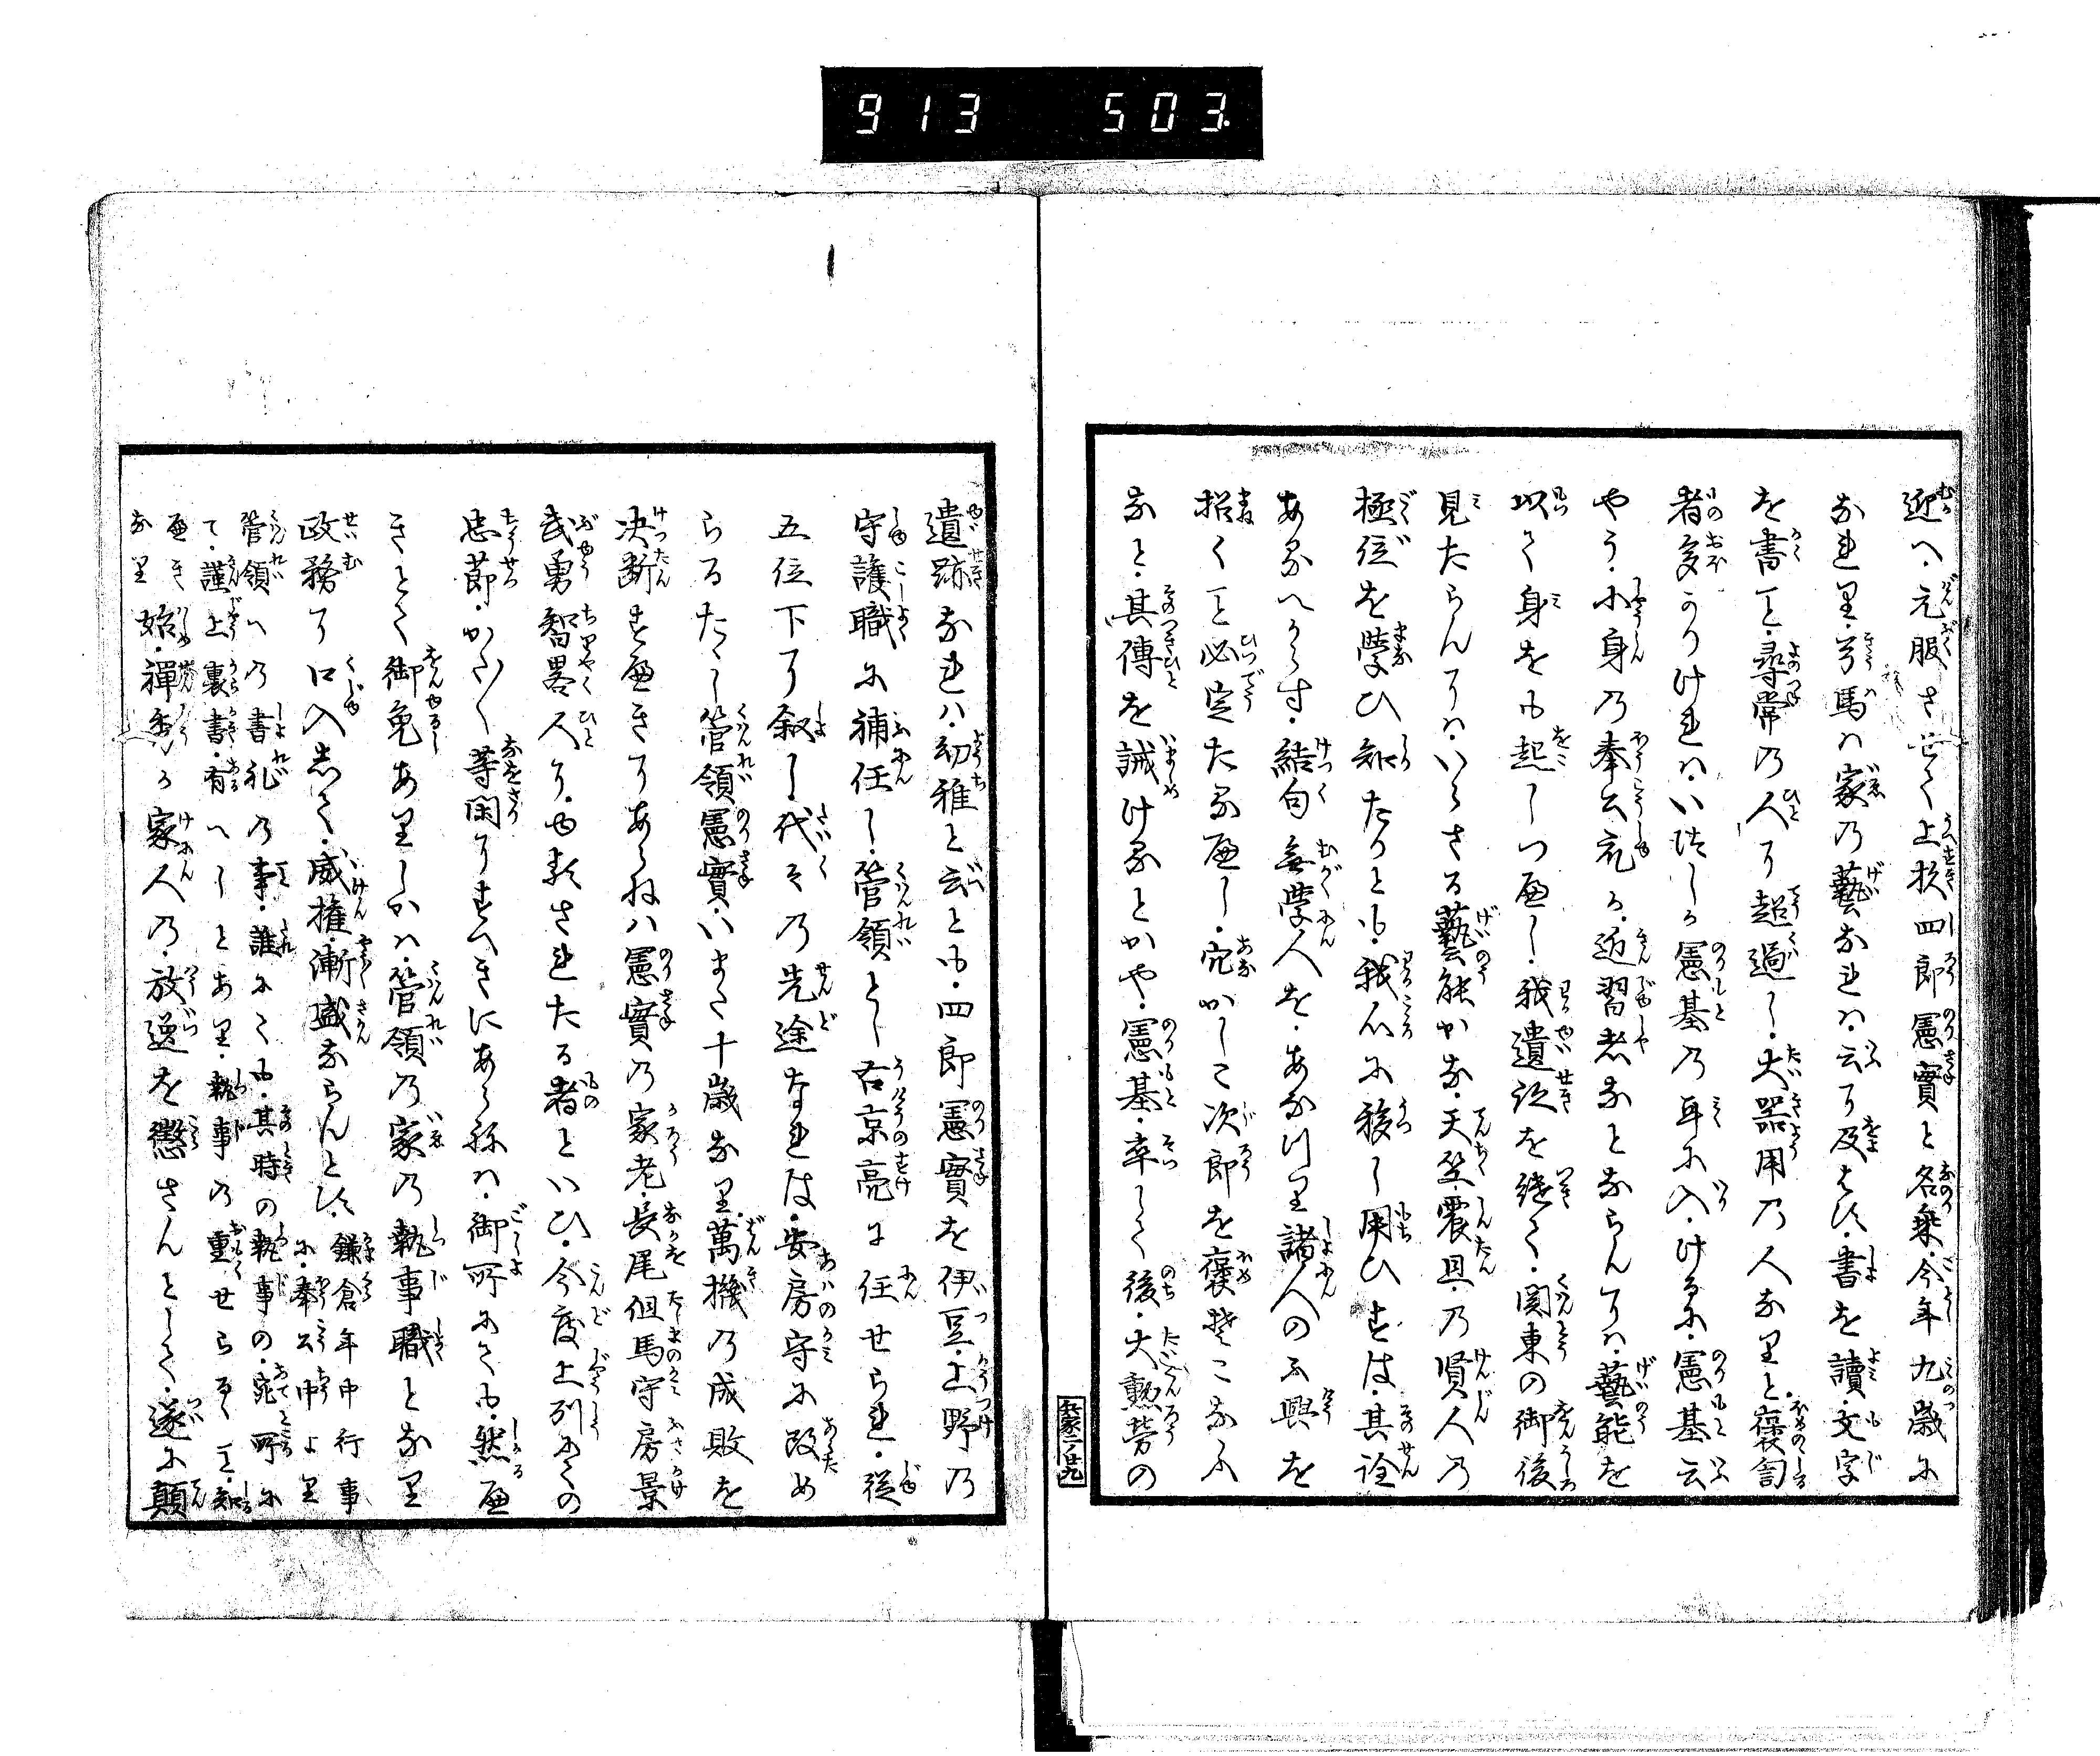 913 503
迎へ・元服させて上杉四郎憲實と名乗・今年九歳に
なれり・弓馬ハ家の藝なれハ・云に及はす・書を讀・文字
を書こと・尋常の人に超過し・大器用の人なりと・褒訇
者多かりけれハ・いつしか憲基の耳に入・けるに・憲基云
やう・小身の奉公充か・近習者なとならんにハ・藝能を
以て身をも起しつへし・我遺跡を継て・関東の御後
見たらんにハ・いらさる藝能かな・天竺震旦・の賢人の
極位を學ひ知たりとも・我心に移し用ひすは・其詮
あるへからす・結句無學人を・あなり諸人の不興を
招くこと必定たるへし・穴かしこ次郎を褒そこなふ
なと・其傅を誡けるとかや・憲基・卒して後・大勲労の
兵家二ノ廿九
遺跡なれハ・幼稚と云とも・四郎憲實を伊豆・上野の
守護職に補任し・管領とし右京亮に任せられ・従
五位下に叙し・代々その先途なれは・安房守に改め
らるたゝし管領憲實・いまた十歳なり・萬機の成敗を
決断すへきにあらねハ憲實の家老・長尾但馬守房景
武勇智畧人に・ゆるされたる者といひ・今度上列にての
忠節・かた〳〵等閑にすへきにあらねハ・御所にても・然へ
きとて御免ありしかハ・管領の家の執事職となり
政務に口入して・威権・漸盛ならんとす・鎌倉年中行事
に・奉公中より
管領への書礼の事・誰にても・其時の執事の・宛所に
て・謹上裏書・有へしとあり・執事の重せらるゝこと・知
へき
なり始・禅秀か家人の・放逸を懲さんとして・遂に顛